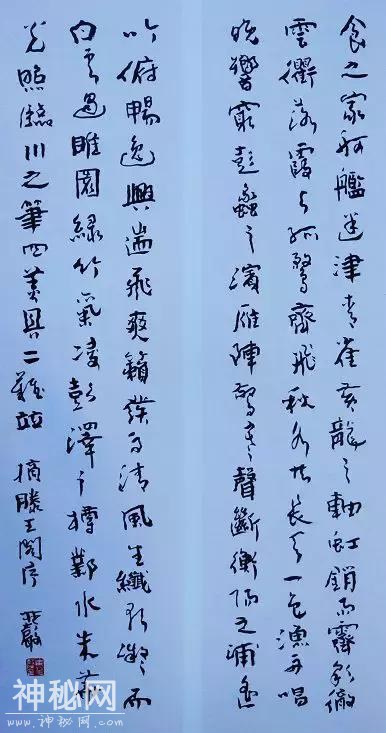 食之家舸艦迷津青雀黃龍之軸虹銷雨霽彩徹
雲衢落霞与孤鶩齊飛秋水共長天一色漁舟唱
晚響窮彭蠡之濱雁陣驚寒聲斷衡陽之浦遙
吟俯暢逸興遄飛爽籟發而清風生纖歌凝而
白雲遏睢園綠竹氣凌彭澤之樽鄴水朱華
光照臨川之筆四美具二難並 摘滕王閣序
神秘网
www.神秘网.com